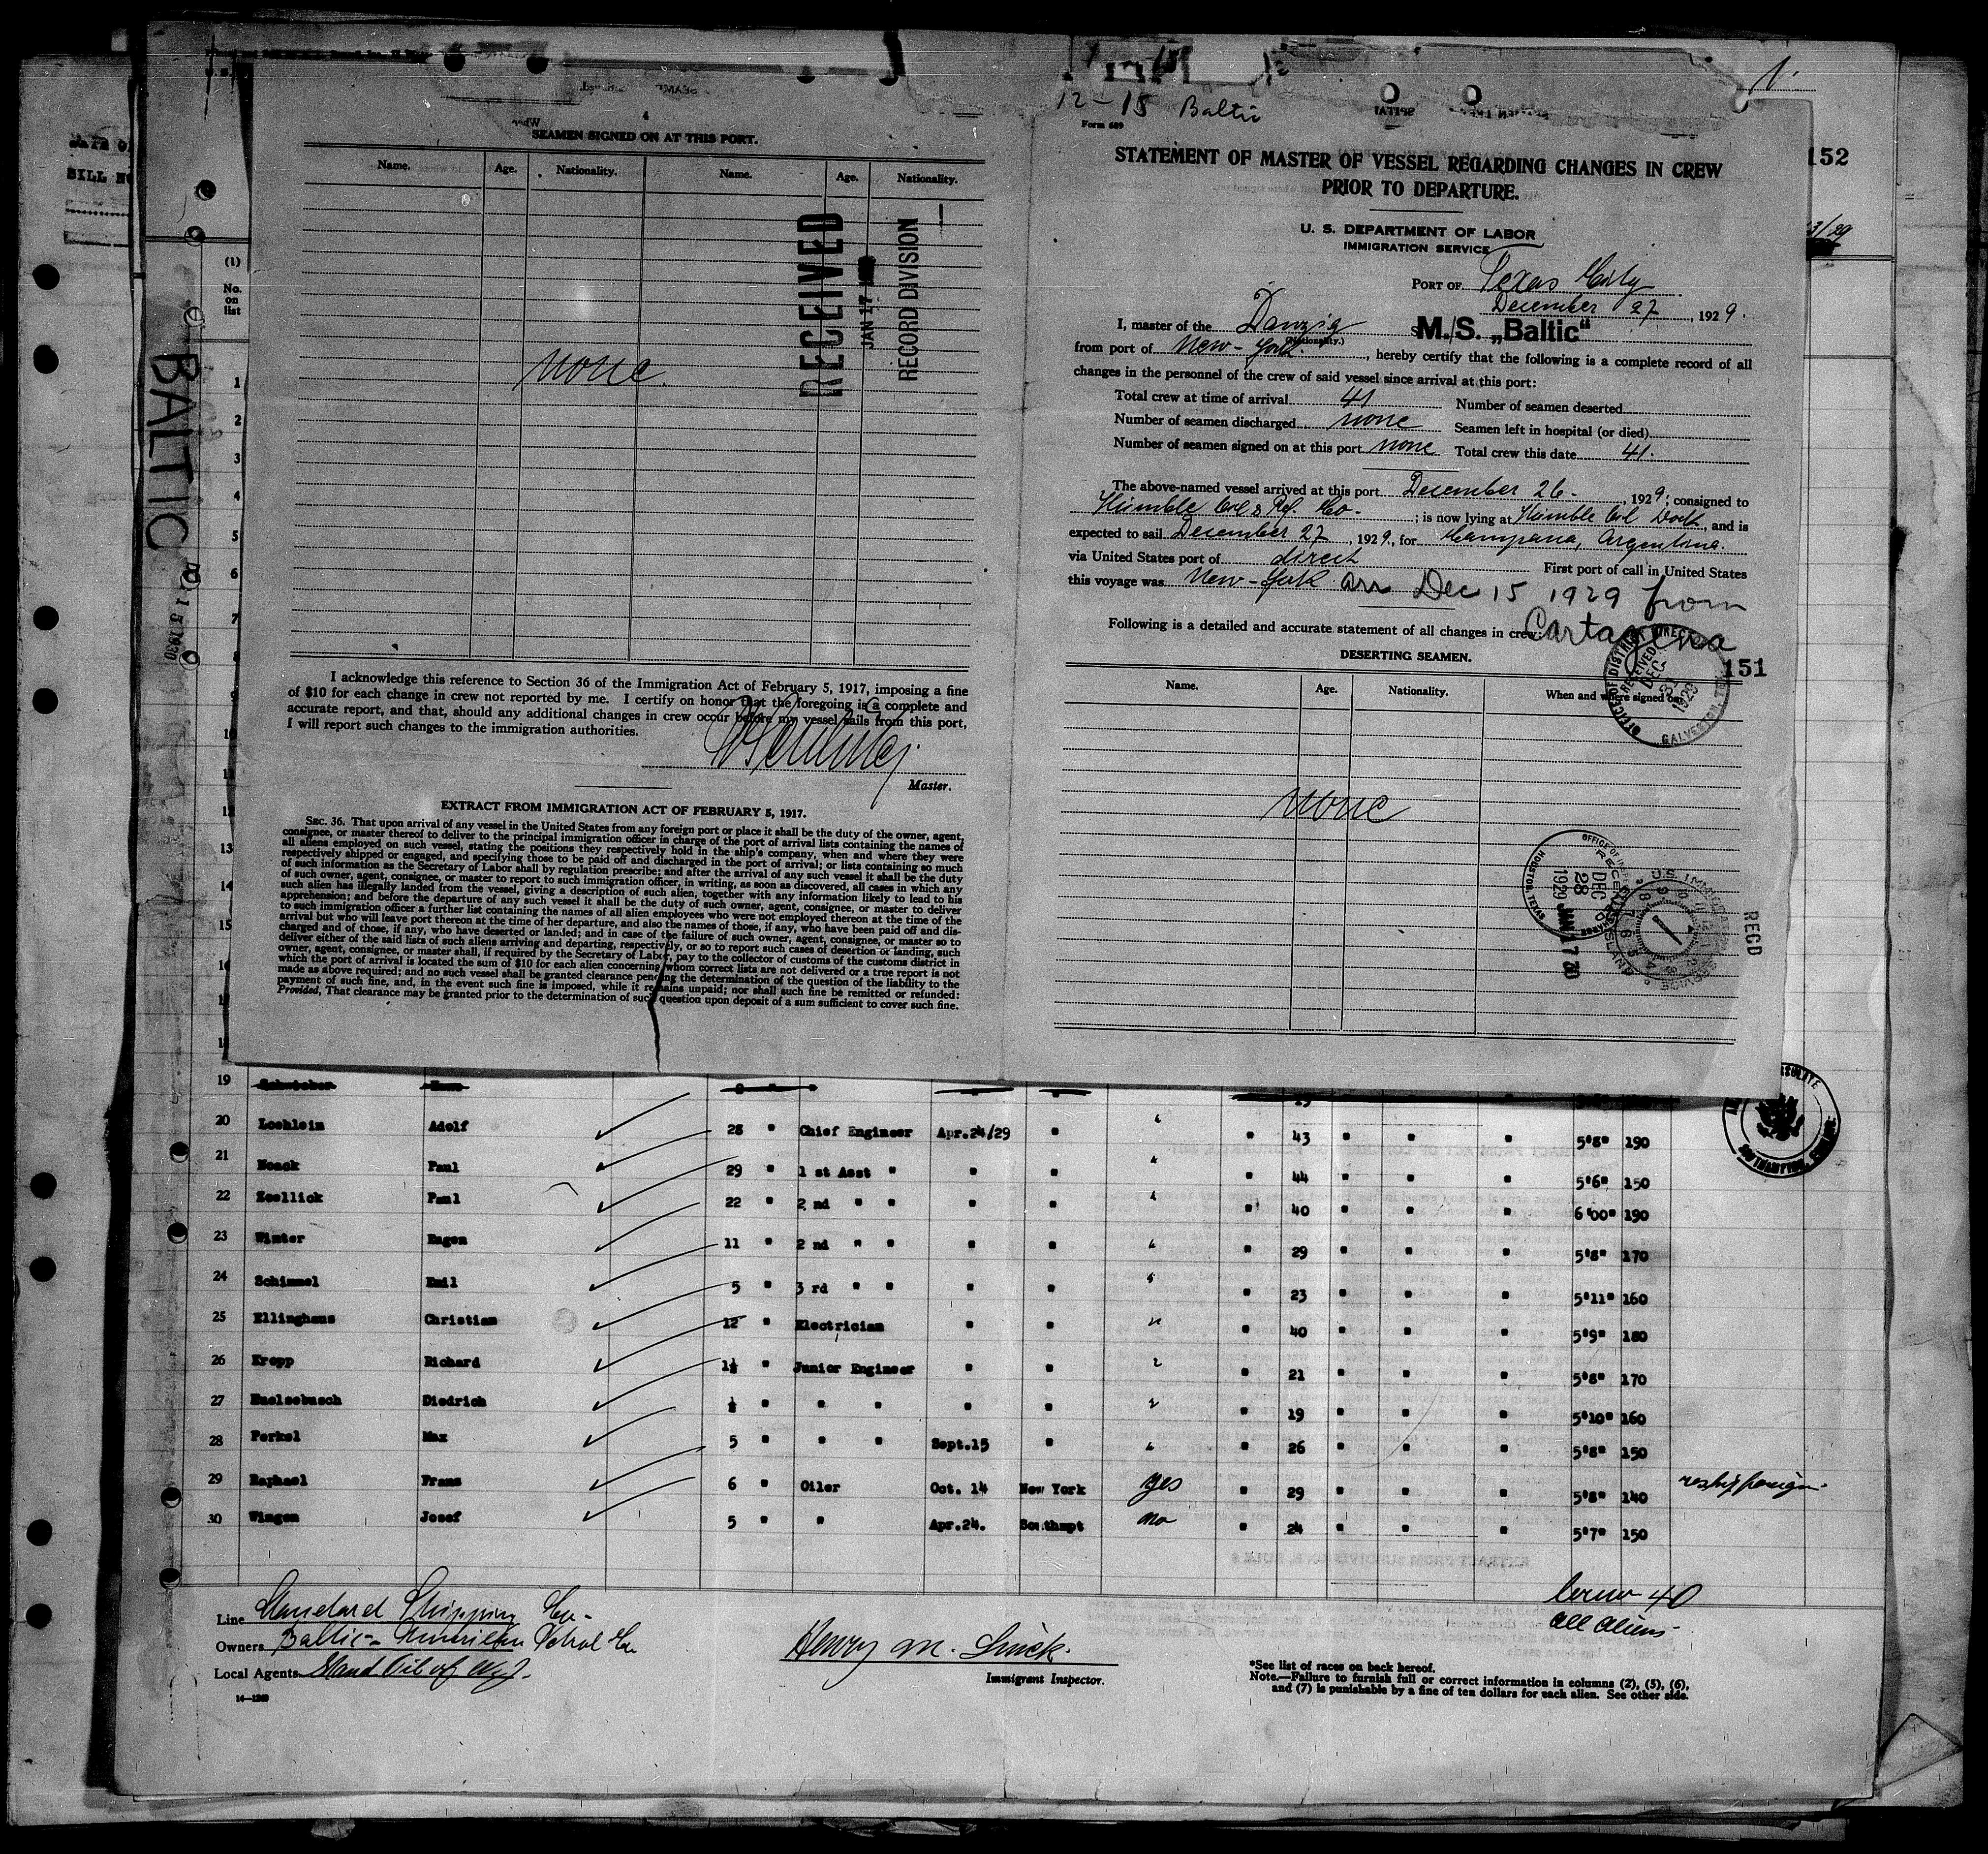 12-15 Baltic
Form 689
SEAMEN SIGNED ON AT THIS PORT.
Name. Age. Nationality. Name. Age. Nationality.
none
RECEIVED
JAN 17
RECORD DIVISION
I acknowledge this reference to Section 36 of the Immigration Act of February 5, 1917, imposing a fine
of $10 for each change in crew not reported by me. I certify on honor that the foregoing is a complete and
accurate report, and that, should any additional changes in crew occur before my vessel sails from this port,
I will report such changes to the immigration authorities.
Master.
EXTRACT FROM IMMIGRATION ACT OF FEBRUARY 5, 1917.
SEC. 36. That upon arrival of any vessel in the United States from any foreign port or place it shall be the duty of the owner, agent,
consignee, or master thereof to deliver to the principal immigration officer in charge of the port of arrival lists containing the names of
all aliens employed on such vessel, stating the positions they respectively hold in the ship's company, when and where they were
respectively shipped or engaged, and specifying those to be paid off and discharged in the port of arrival; or lists containing so much
of such information as the Secretary of Labor shall by regulation prescribe; and after the arrival of any such vessel it shall be the duty
of such owner, agent, consignee, or master to report to such immigration officer, in writing, as soon as discovered, all cases in which any
such alien has illegally landed from the vessel, giving a description of such alien, together with any information likely to lead to his
apprehension; and before the departure of any such vessel it shall be the duty of such owner, agent, consignee, or master to deliver
to such immigration officer a further list containing the names of all alien employees who were not employed thereon at the time of the
arrival but who will leave port thereon at the time of her departure, and also the names of those, if any, who have been paid off and dis-
charged and of those, if any, who have deserted or landed; and in case of the failure of such owner, agent, consignee, or master so to
deliver either of the said lists of such aliens arriving and departing, respectively, or so to report such cases of desertion or landing, such
owner, agent, consignee, or master shall, if required by the Secretary of Labor, pay to the collector of customs of the customs district in
which the port of arrival is located the sum of $10 for each alien concerning whom correct lists are not delivered or a true report is not
made as above required; and no such vessel shall be granted clearance pending the determination of the question of the liability to the
payment of such fine, and, in the event such fine is imposed, while it remains unpaid; nor shall such fine be remitted or refunded:
Provided, That clearance may be granted prior to the determination of such question upon deposit of a sum sufficient to cover such fine.
STATEMENT OF MASTER OF VESSEL REGARDING CHANGES IN CREW
PRIOR TO DEPARTURE.
U. S. DEPARTMENT OF LABOR
IMMIGRATION SERVICE
PORT OF Texas City
December 27, 1929.
I, master of the Danzig M/S. „Baltic“
(Nationality.)
from port of New-York, hereby certify that the following is a complete record of all
changes in the personnel of the crew of said vessel since arrival at this port:
Total crew at time of arrival 41 Number of seamen deserted
Number of seamen discharged none Seamen left in hospital (or died)
Number of seamen signed on at this port none Total crew this date 41.
The above-named vessel arrived at this port December 26-, 1929; consigned to
Humble Oil & Ref. Co-; is now lying at Humble Oil Dock, and is
expected to sail December 27, 1929, for Campana, Argentina.
via United States port of direct First port of call in United States
this voyage was New-York arr Dec 15 1929 from
Following is a detailed and accurate statement of all changes in crew: Cartagena
DESERTING SEAMEN.
Name. Age. Nationality. When and where signed on.
none
OFFICE OF DISTRICT DIRECTOR
RECEIVED
DEC 31 1929
GALVESTON
151
152
HOUSTON, TEXAS
DEC 28 1929
JAN 17 30
RECD
BALTIC
(1)
No.
on
list
1
2
3
4
5
6
7
8
9
10
11
12
13
14
15
19
20 Loehlein Adolf 28 " Chief Engineer Apr.24/29 " " 43 " " " 5'8" 190
21 Noack Paul 29 " 1 st Asst " " " " 44 " " " 5'6" 150
22 Zoellick Paul 22 " 2 nd " " " " " 40 " " " 6'00" 190
23 Winter Eugen 11 " 2 nd " " " " " 29 " " " 5'8" 170
24 Schimmel Emil 5 " 3 rd " " " " " 23 " " " 5'11" 160
25 Ellinghaus Christian 12 " Electrician " " " 40 " " " 5'9" 180
26 Kropp Richard 1½ " Junior Engineer " " " 21 " " " 5'8" 170
27 Huelsebusch Diedrich ½ " " " " " " 19 " " " 5'10" 160
28 Perkel Max 5 " " " Sept.15 " " 26 " " " 5'8" 150
29 Raphael Franz 6 " Oiler Oct. 14 New York yes " 29 " " " 5'8" 140 reship foreign
30 Wingen Josef 5 " " Apr.24. Southmpt no " 24 " " " 5'7" 150
crew 40
all aliens
Line Standard Shipping Co-
Owners Baltic-American Petrol Co
Local Agents Stand Oil of N.J.
14—1240
Henry M.
Immigrant Inspector.
*See list of races on back hereof.
Note.—Failure to furnish full or correct information in columns (2), (5), (6),
and (7) is punishable by a fine of ten dollars for each alien. See other side.